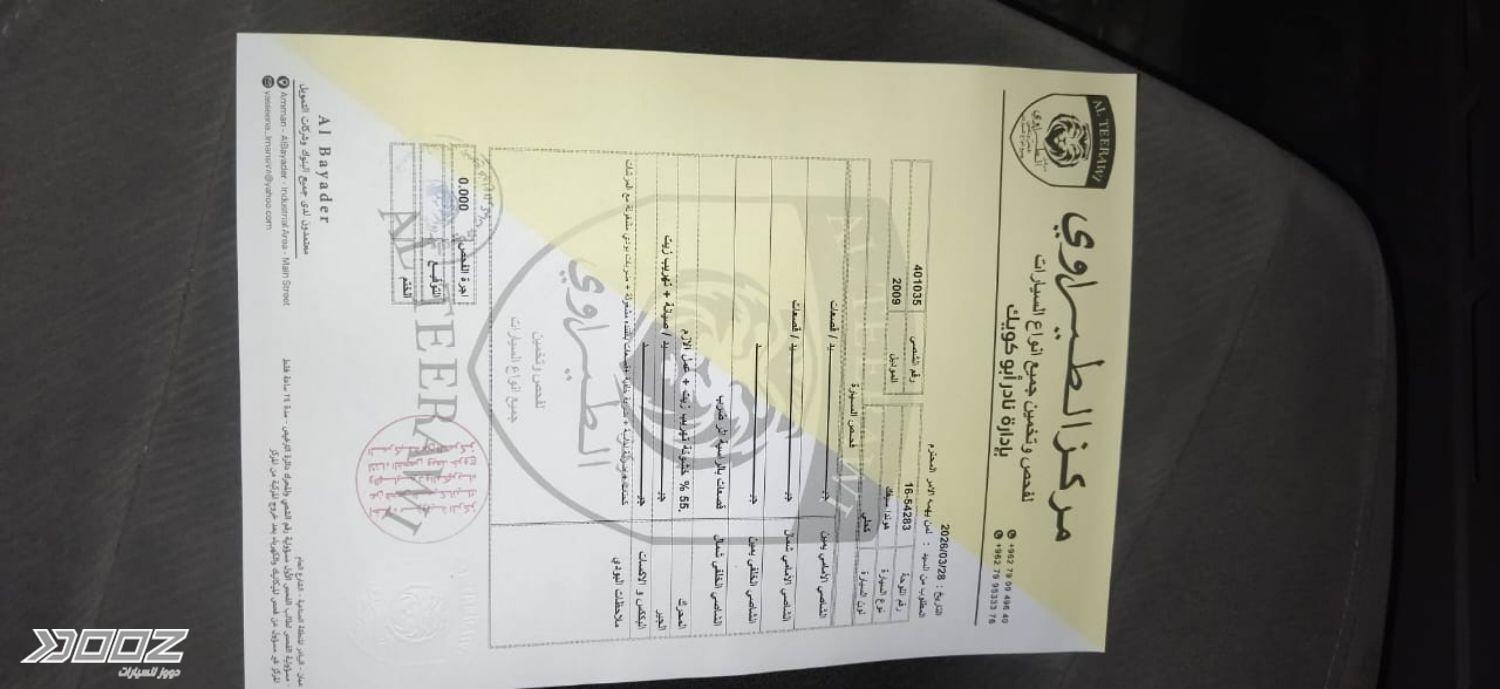 AL TEERAWI
مركز الطيراوي
لفحص وتخمين جميع انواع السيارات
بإدارة نادر أبو كويك
+962 79 99 496 40
+962 79 95333 76
التاريخ : 2026/03/28
المطلوب من السيد : لمن يهمه الامر المحترم
رقم اللوحة 16-54283
رقم الشصي 401035
نوع السيارة هوندا سيفك
الموديل 2009
لون السيارة كحلي
فحص السيارة
الشاصي الأمامي يمين جيد / قصعات
الشاصي الأمامي شمال جيد / قصعات
الشاصي الخلفي يمين جيد
الشاصي الخلفي شمال قصعات بالراسية اثر ضرب
المحرك 55 % خشوفة تهريب زيت + عمل الازم
الجير جيد / صيانة + تهريب زيت
البككس و الاكسات جيد
ملاحظات البودي
اجرة الفحص 0.000
التوقيع
الختم
AL TEERAWI
الطيراوي
لفحص وتخمين
جميع انواع السيارات
Al Bayader
معتمدون لدى جميع البنوك وشركات التمويل
Amman - AlBayader - Industrial Area - Main Street
DOOZ
دووز للسيارات